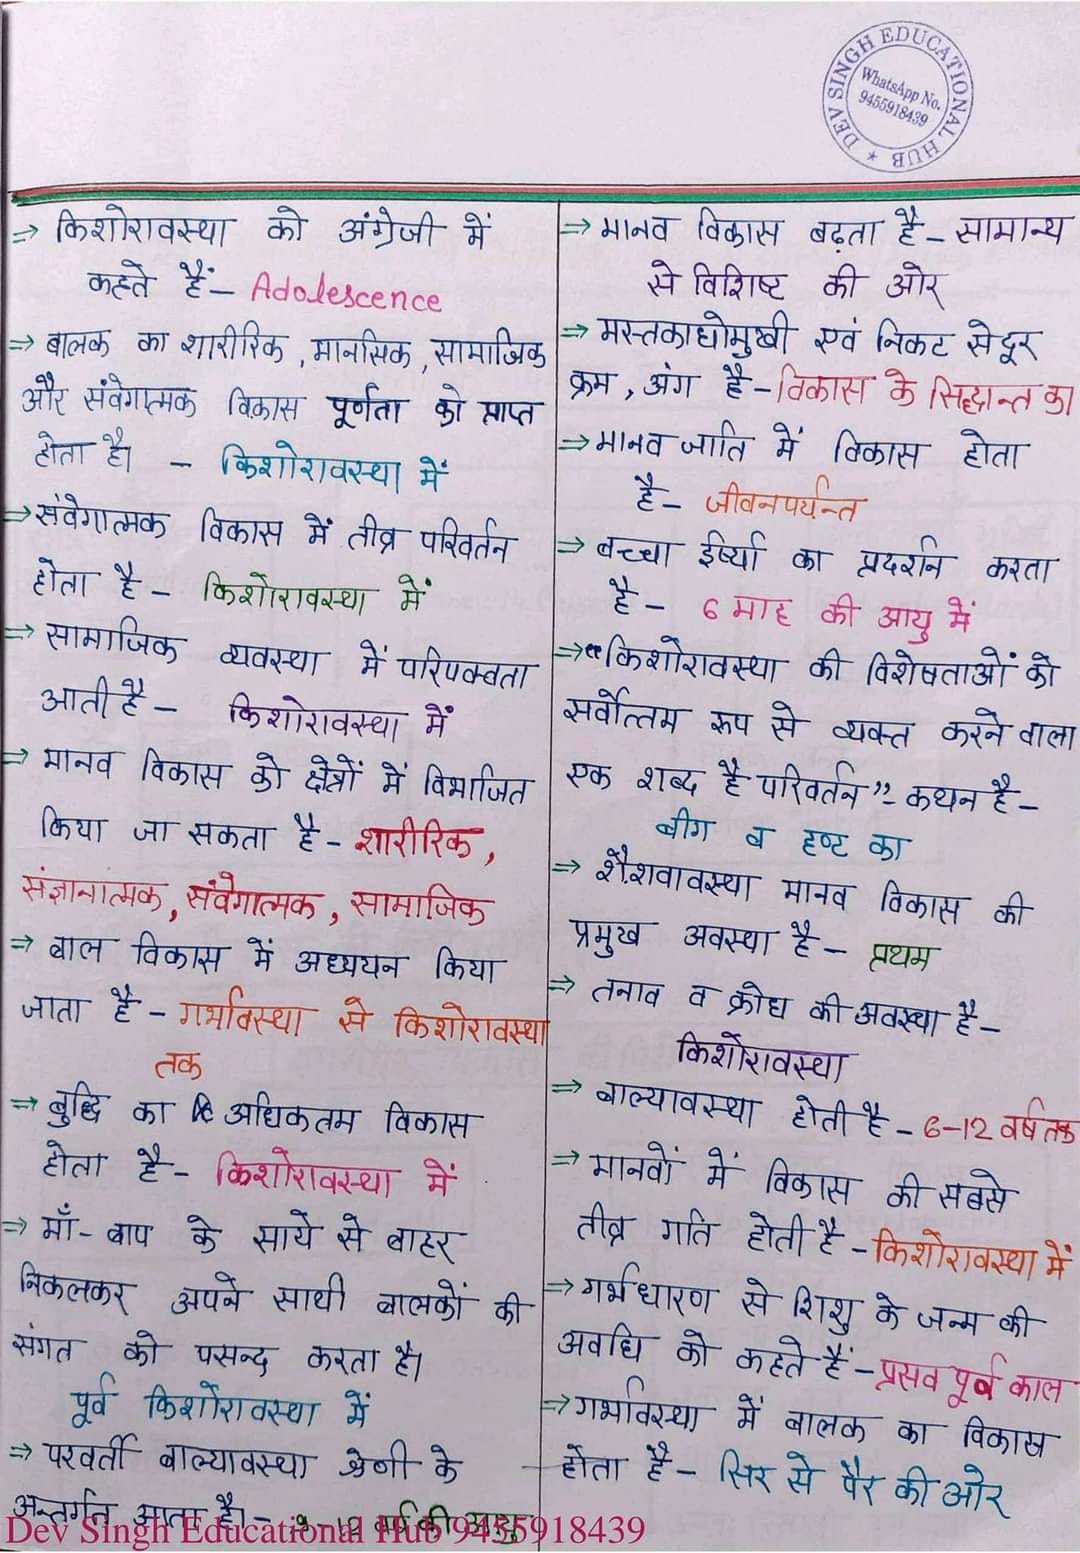 DEV SINGH EDUCATIONAL HUB
WhatsApp No.
9455918439
⇒ किशोरावस्था को अंग्रेजी में
कहते हैं- Adolescence
⇒ बालक का शारीरिक, मानसिक, सामाजिक
और संवेगात्मक विकास पूर्णता को प्राप्त
होता है। - किशोरावस्था में
⇒ संवेगात्मक विकास में तीव्र परिवर्तन
होता है- किशोरावस्था में
⇒ सामाजिक व्यवस्था में परिपक्वता
आती है- किशोरावस्था में
⇒ मानव विकास को क्षेत्रों में विभाजित
किया जा सकता है- शारीरिक,
संज्ञानात्मक, संवेगात्मक, सामाजिक
⇒ बाल विकास में अध्ययन किया
जाता है- गर्भावस्था से किशोरावस्था
तक
⇒ बुद्धि का अधिकतम विकास
होता है- किशोरावस्था में
⇒ माँ-बाप के साये से बाहर
निकलकर अपने साथी बालकों की
संगत को पसन्द करता है।
पूर्व किशोरावस्था में
⇒ परवर्ती बाल्यावस्था श्रेणी के
अन्तर्गत आता है।-
⇒ मानव विकास बढ़ता है- सामान्य
से विशिष्ट की ओर
⇒ मस्तकाधोमुखी एवं निकट से दूर
क्रम, अंग है- विकास के सिद्धान्त का
⇒ मानव जाति में विकास होता
है- जीवनपर्यन्त
⇒ बच्चा ईर्ष्या का प्रदर्शन करता
है- 6 माह की आयु में
⇒ "किशोरावस्था की विशेषताओं को
सर्वोत्तम रूप से व्यक्त करने वाला
एक शब्द है परिवर्तन"- कथन है-
बीग व हण्ट का
⇒ शैशवावस्था मानव विकास की
प्रमुख अवस्था है- प्रथम
⇒ तनाव व क्रोध की अवस्था है-
किशोरावस्था
⇒ बाल्यावस्था होती है- 6-12 वर्ष तक
⇒ मानवों में विकास की सबसे
तीव्र गति होती है- किशोरावस्था में
⇒ गर्भधारण से शिशु के जन्म की
अवधि को कहते हैं- प्रसव पूर्व काल
⇒ गर्भावस्था में बालक का विकास
होता है- सिर से पैर की ओर
Dev Singh Educational Hub 9455918439